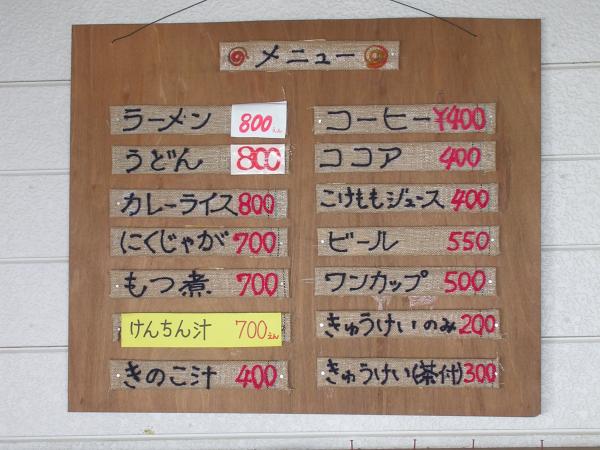 メニュー
ラーメン 800えん
うどん 800
カレーライス 800
にくじゃが 700
もつ煮 700
けんちん汁 700えん
きのこ汁 400
コーヒー ¥400
ココア 400
こけももジュース 400
ビール 550
ワンカップ 500
きゅうけいのみ 200
きゅうけい(茶付) 300